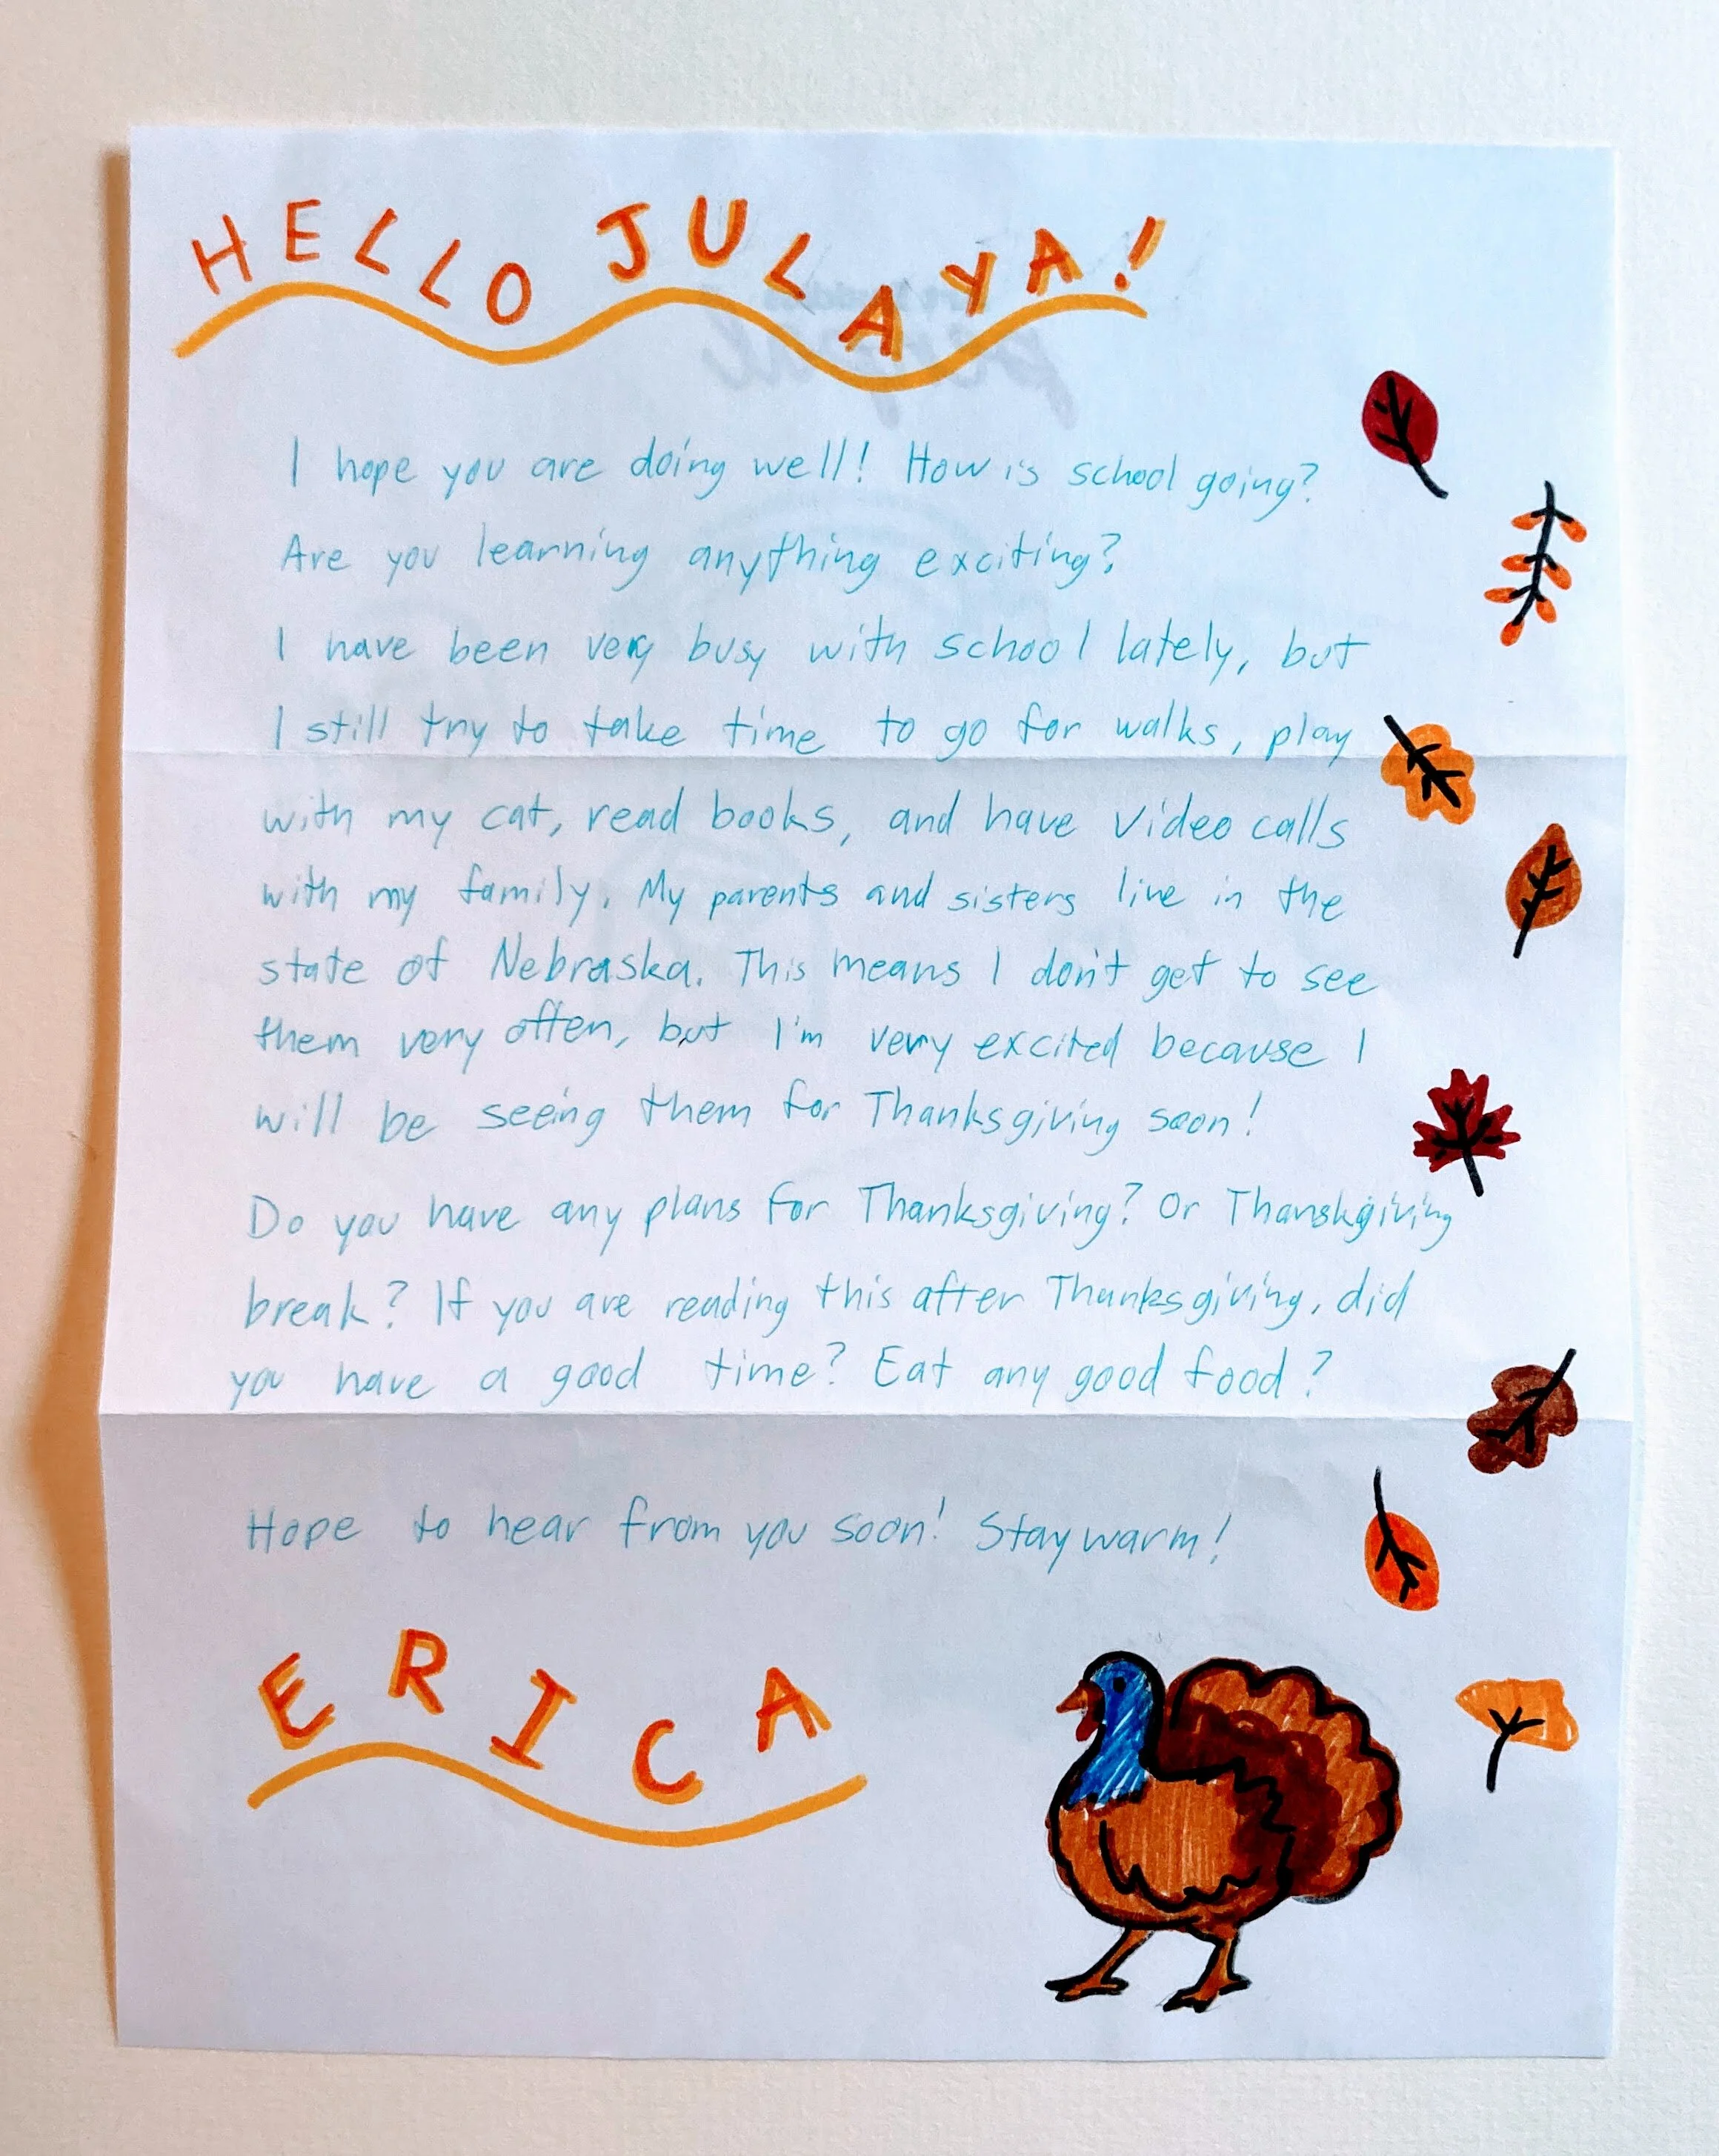 HELLO JULAYA!
I hope you are doing well! How is school going?
Are you learning anything exciting?
I have been very busy with school lately, but
I still try to take time to go for walks, play
with my cat, read books, and have video calls
with my family. My parents and sisters live in the
state of Nebraska. This means I don't get to see
them very often, but I'm very excited because I
will be seeing them for Thanksgiving soon!
Do you have any plans for Thanksgiving? Or Thanskgiving
break? If you are reading this after Thanksgiving, did
you have a good time? Eat any good food?
Hope to hear from you soon! Stay warm!
ERICA